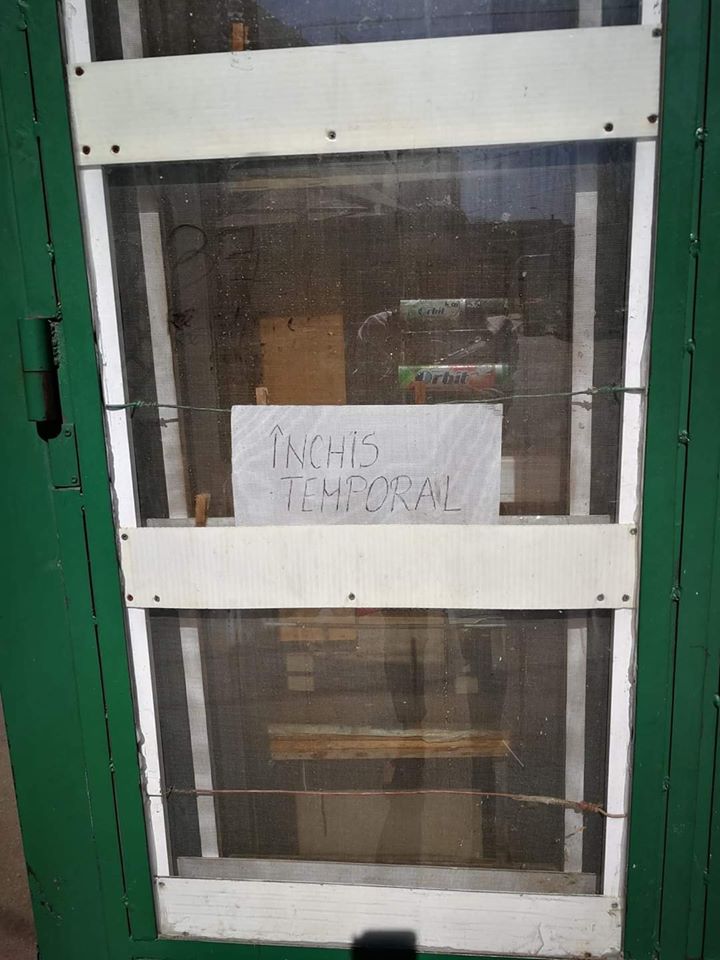 Orbit
Orbit
ÎNCHIS
TEMPORAL